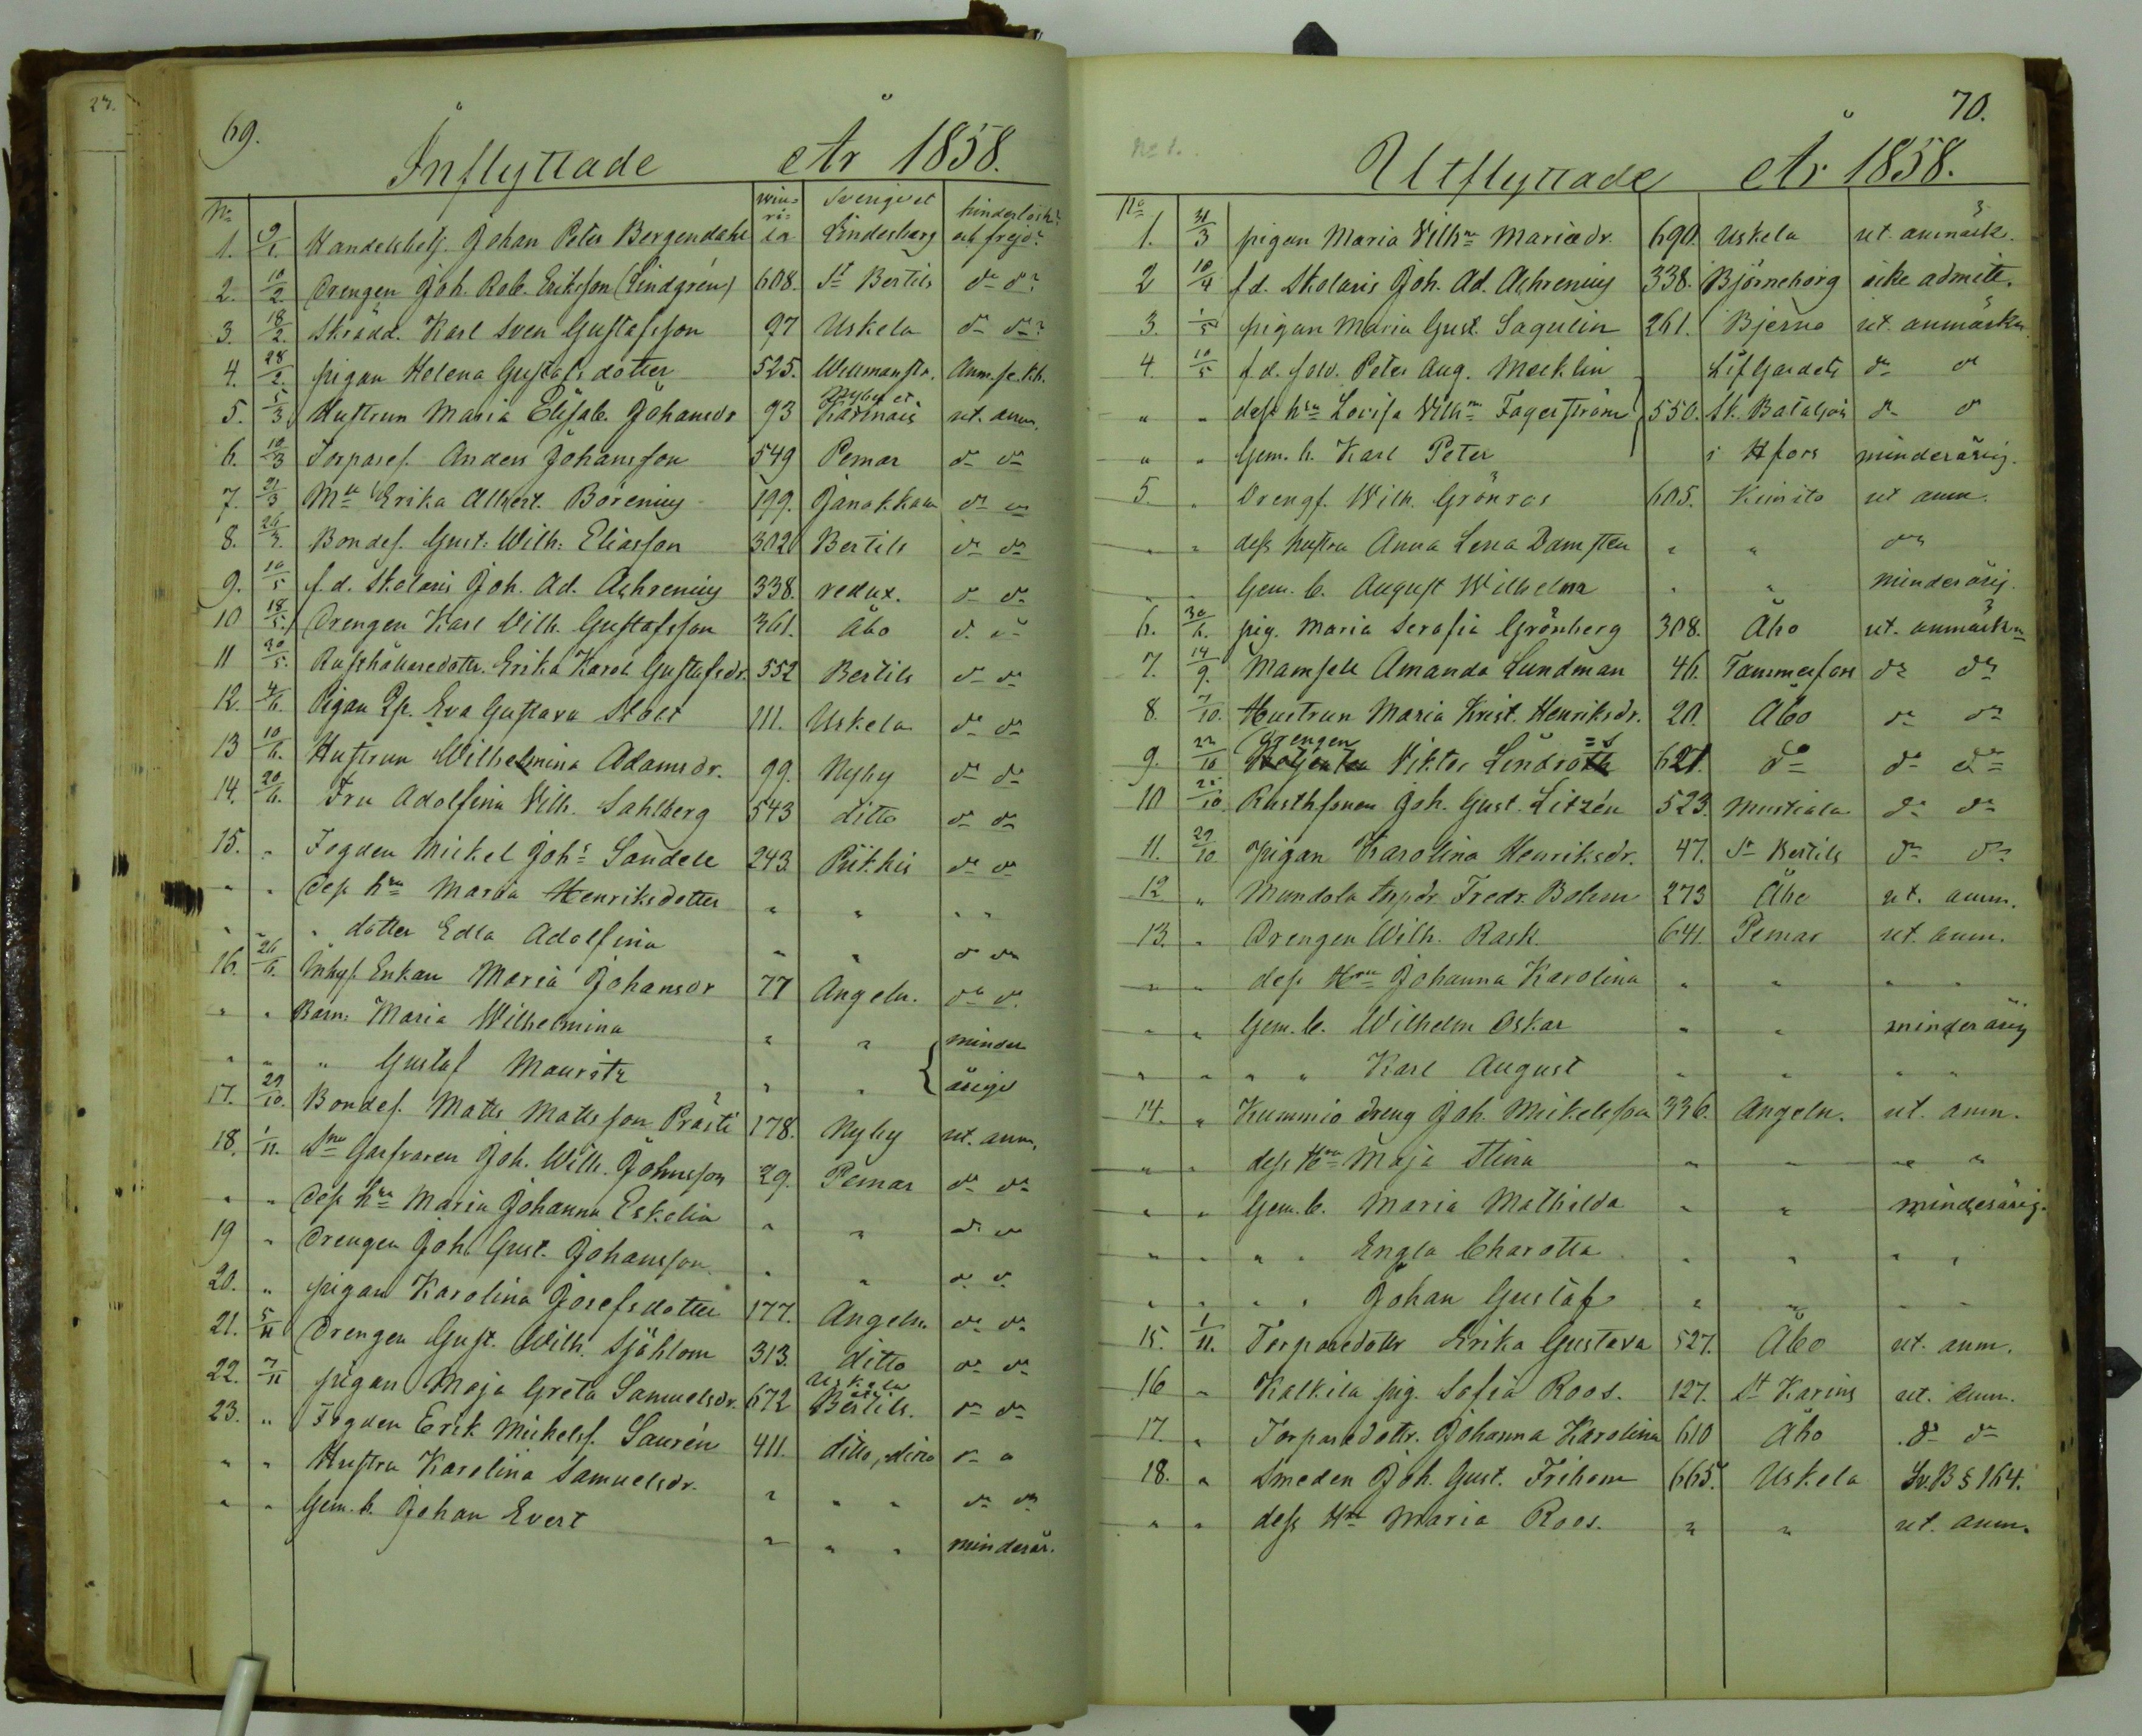 23.
69.
Inflyttade År 1858.
No
1. 9/1. Handelsbetj. Johan Peter Bergendahl Sverige et Lindesberg hinderlösh. och frejd.
2. 10/2. Drengen Joh. Rob. Eriksson (Lindgrén) 608. St Bertils do do
3. 18/2. Skrädd. Karl Sven Gustafsson 97 Uskela do do
4. 28/2. pigan Helena Gustafsdotter 525. Willmanstr.
5. 5/3 Hustrun Maria Elisab. Johansdr 93 Nyby et Karinais ut. anm.
6. 10/3 Torparef. Anders Johansson 549 Pemar do do
7. 21/3 Mll Erika Albert. Borenius 199. Janakkala do do
8. 26/3. Bondes. Gust. Wilh. Eliasson 302 Bertils do do
9. 10/5 f.d. Skolaris Joh. Ad. Achrenius 338. redux. do do
10 18/5. Drengen Karl Wilh. Gustafsson 361. Åbo do do
11 30/5. Rusthållaredotter. Erika Karol. Gustafsdr. 552 Bertils do do
12. 4/6. Pigan Eva Gustava Stolt 111. Uskela do do
13 10/6. Hustrun Wilhelmina Adamsdr. 99. Nyby do do
14. 20/6. Fru Adolfina Wilh. Sahlberg 543 ditto do do
15. " Fogden Mickel Johs Sandell 243 Piikkis do do
" " Dess hru Maria Henriksdotter " " " "
" " " dotter Edla Adolfina " " do do
16. 26/6. Inhys. Enkan Maria Johansdr 77 Angeln. do do
" " Barn: Maria Wilhelmina " " minder
" " " Gustaf Mauritz " " årige
17. 29/10. Bondes. Matts Mattsson Prästi 178. Nyby ut. anm.
18. 1/11. Garfvaren Joh. Wilh. Johnsson 29. Pemar do do
" " Dess hru Maria Johanna Eskelin " " do do
19 " Drengen Joh. Gust. Johansson " " do do
20. " pigan Karolina Josefsdotter 177. Angeln. do do
21. 5/11 Drengen Gust. Wilh. Sjöblom 313. ditto do do
22. 7/11 pigan Maja Greta Samuelsdr. 672 Uskela et Bertils. do do
23. " Fogden Erik Mickelss. Saurén 411. ditto, ditto do do
" " Hustru Karolina Samuelsdr. " " " do do
" " Gem. b. Johan Evert " " " minderår.
70.
No 1.
Utflyttade År 1858.
No
1. 31/3 pigan Maria Vilhna Mariædr. 690. Uskela ut. anmärk.
2 10/4 f.d. Skolaris Joh. Ad. Achrenius 338. Björneborg icke admitt.
3. 1/5 pigan Maria Gust. Sagulin 261. Bjerno ut. anmärkn
4. 10/5 f.d. Peter Aug. Mecklin Lifgardets do do
" " dess hru Lovisa Vilhna Fagerström 550. Sk. Bataljon do do
" " Gem. b. Karl Peter i Hfors minderårig.
5. " Drengf. Wilh. Grönros 605. Kimito ut anm.
" " dess hustru Anna Lena Damsten " " do
" " Gem. b. August Wilhelm " " minderårig.
6. 30/6. pig. Maria Serafia Grönberg 308. Åbo ut. anmärkn
7. 14/9. Mamsell Amanda Lundman 46. Tammerfors do do
8. 7/10. Hustrun Maria Krist. Henriksdr. 20. Åbo do do
9. 22/10 Drengen Viktor Lindroth =s 621. do do do
10 25/10 Rusthsonen Joh. Gust. Litzén 523. Mustiala do do
11. 29/10 pigan Karolina Henriksdr. 47. St Bertils do do
12. " Mandola torpdr Fredr. Bohm 273 Åbo ut. anm.
13. " Drengen Wilh. Rask 641. Pemar ut. anm.
" " dess Hru Johanna Karolina " " " "
" " Gem. b. Wilhelm Oskar " " minderårig
" " " " Karl August " " " "
14. " Kummio dreng Joh. Mickelsson 336. Angeln. ut. anm.
" " dess Hru Maja Stina " " " "
" " Gem. b. Maria Mathilda " " minderårig.
" " " " Engla Charotta " " " "
" " " " Johan Gustaf " " " "
15. 1/11. Torparedottr Erika Gustava 527. Åbo ut. anm.
16 " Kalkila pig. Sofia Roos. 127. St Karins ut. anm.
17. " Torparedottr. Johanna Karolina 610 Åbo do do
18. " Smeden Joh. Gust. Frihem 665. Uskela Sv. B § 164.
" " dess Hru Maria Roos. " " ut. anm.